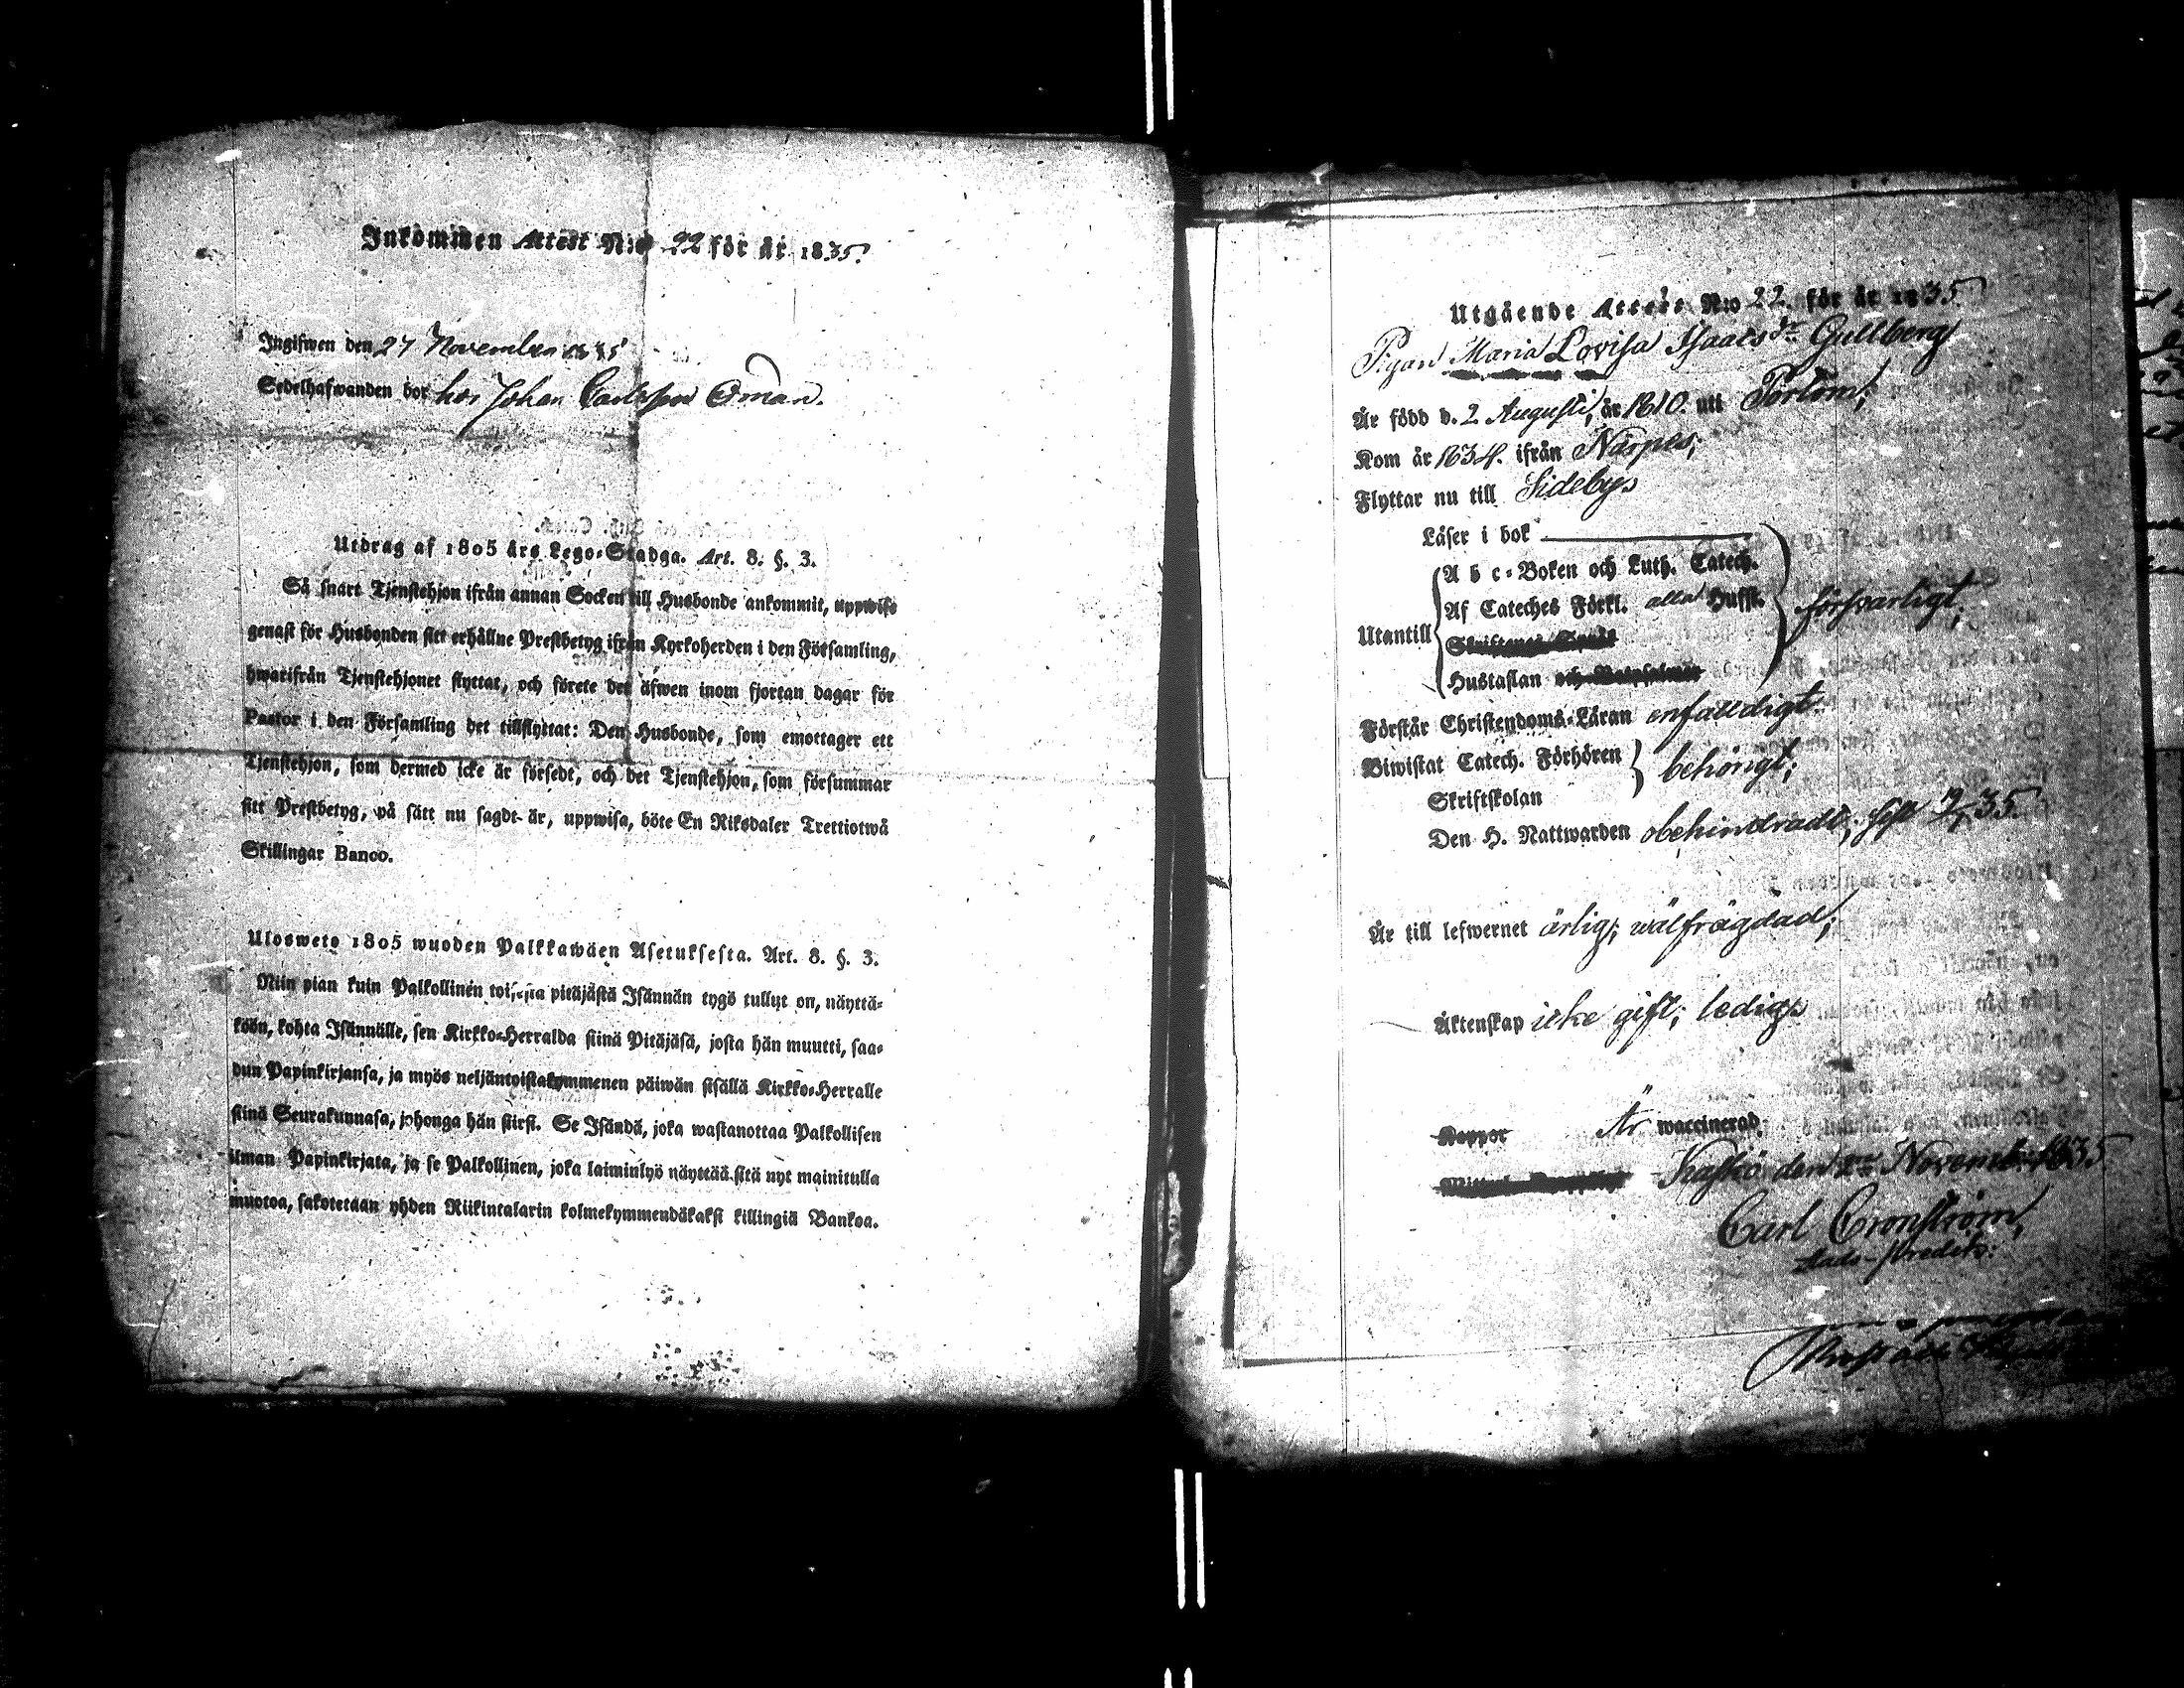 Inkommen Attest N:o 22 för år 1835.
Ingifwen den 27 November 1835
Sedelhafwanden bor hos Johan Carlsson Öman.
Utdrag af 1805 års Lego-Stadga. Art. 8. §. 3.
Så snart Tjenstehjon ifrån annan Socken till Husbonde ankommit, uppwise
genast för Husbonden sitt erhållne Prestbetyg ifrån Kyrkoherden i den Församling,
hwarifrån Tjenstehjonet flyttat, och förete det äfwen inom fjortan dagar för
Pastor i den Församling det tillflyttat: Den Husbonde, som emottager ett
Tjenstehjon, som dermed icke är försedt, och det Tjenstehjon, som försummar
sitt Prestbetyg, på sätt nu sagdt är, uppwisa, böte En Riksdaler Trettiotwå
Skillingar Banco.
Ulosweto 1805 wuoden Palkkawäen Asetuksesta. Art. 8. §. 3.
Niin pian kuin Palkollinen toisesta pitäjästä Isännän tygö tullut on, näyttä-
köön, kohta Isännälle, sen Kirkko-Herralda siinä Pitäjäsä, josta hän muutti, saa-
dun Papinkirjansa, ja myös neljäntoistakymmenen päiwän sisällä Kirkko-Herralle
siinä Seurakunnasa, johonga hän siirsi. Se Isändä, joka wastanottaa Palkollisen
ilman Papinkirjata, ja se Palkollinen, joka laiminlyö näyttää sitä nyt mainitulla
muotoa, sakotetaan yhden Riikintalarin kolmekymmendäkaksi killingiä Bankoa.
Utgående Attest N:o 22. för år 1835
Pigan Maria Lovisa Isaacs dr Gullberg
Är född d. 2 Augusti, år 1810. uti Törtöm;
Kom år 1834. ifrån Närpes;
Flyttar nu till Sideby
Läser i bok
A b c-Boken och Luth. Catech.
Af Cateches Förkl. alla Hufst. försvarligt;
Utantill
Hustaflan
Förstår Christendoms-Läran enfaldigt
Biwistat Catech. Förhören behörigt;
Skriftskolan
Den H. Nattwarden obehindradt; sist 35.
Är till lefwernet ärlig; wälfrägdad;
Äktenskap icke gift; ledig
Koppor Är waccinerad;
Kaskö den Novemb. 1835
Carl Cronström,
Stads-Predik: